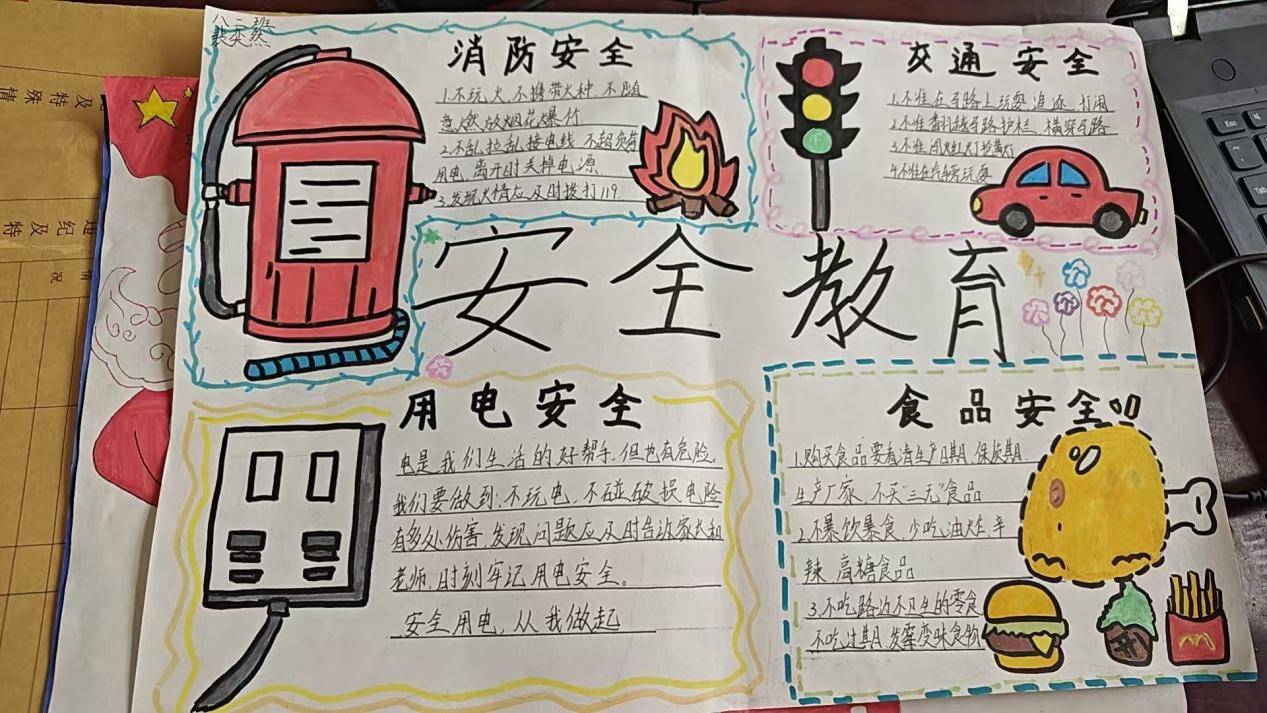 八二班
裴奕然
消防安全
1.不玩火,不携带火种,不随
意燃放烟花爆竹
2.不乱拉乱接电线,不超负荷
用电,离开时关掉电源
3.发现火情应及时拨打119.
交通安全
1.不准在马路上玩耍、追逐、打闹
2.不准翻越马路护栏、横穿马路
3.不准闯红灯抢黄灯
4.不准在汽车旁玩耍
安全教育
用电安全
电是我们生活的好帮手,但也有危险。
我们要做到:不玩电,不碰破损电险
有多处伤害,发现问题应及时告诉家长和
老师,时刻牢记用电安全。
安全用电,从我做起
食品安全
1.购买食品要看清生产日期、保质期、
生产厂家,不买"三无"食品
2.不暴饮暴食,少吃油炸、辛
辣、高糖食品
3.不吃路边不卫生的零食
不吃过期、发霉变味食物
情殊特及
特及纪违
况情
Esc
Tab